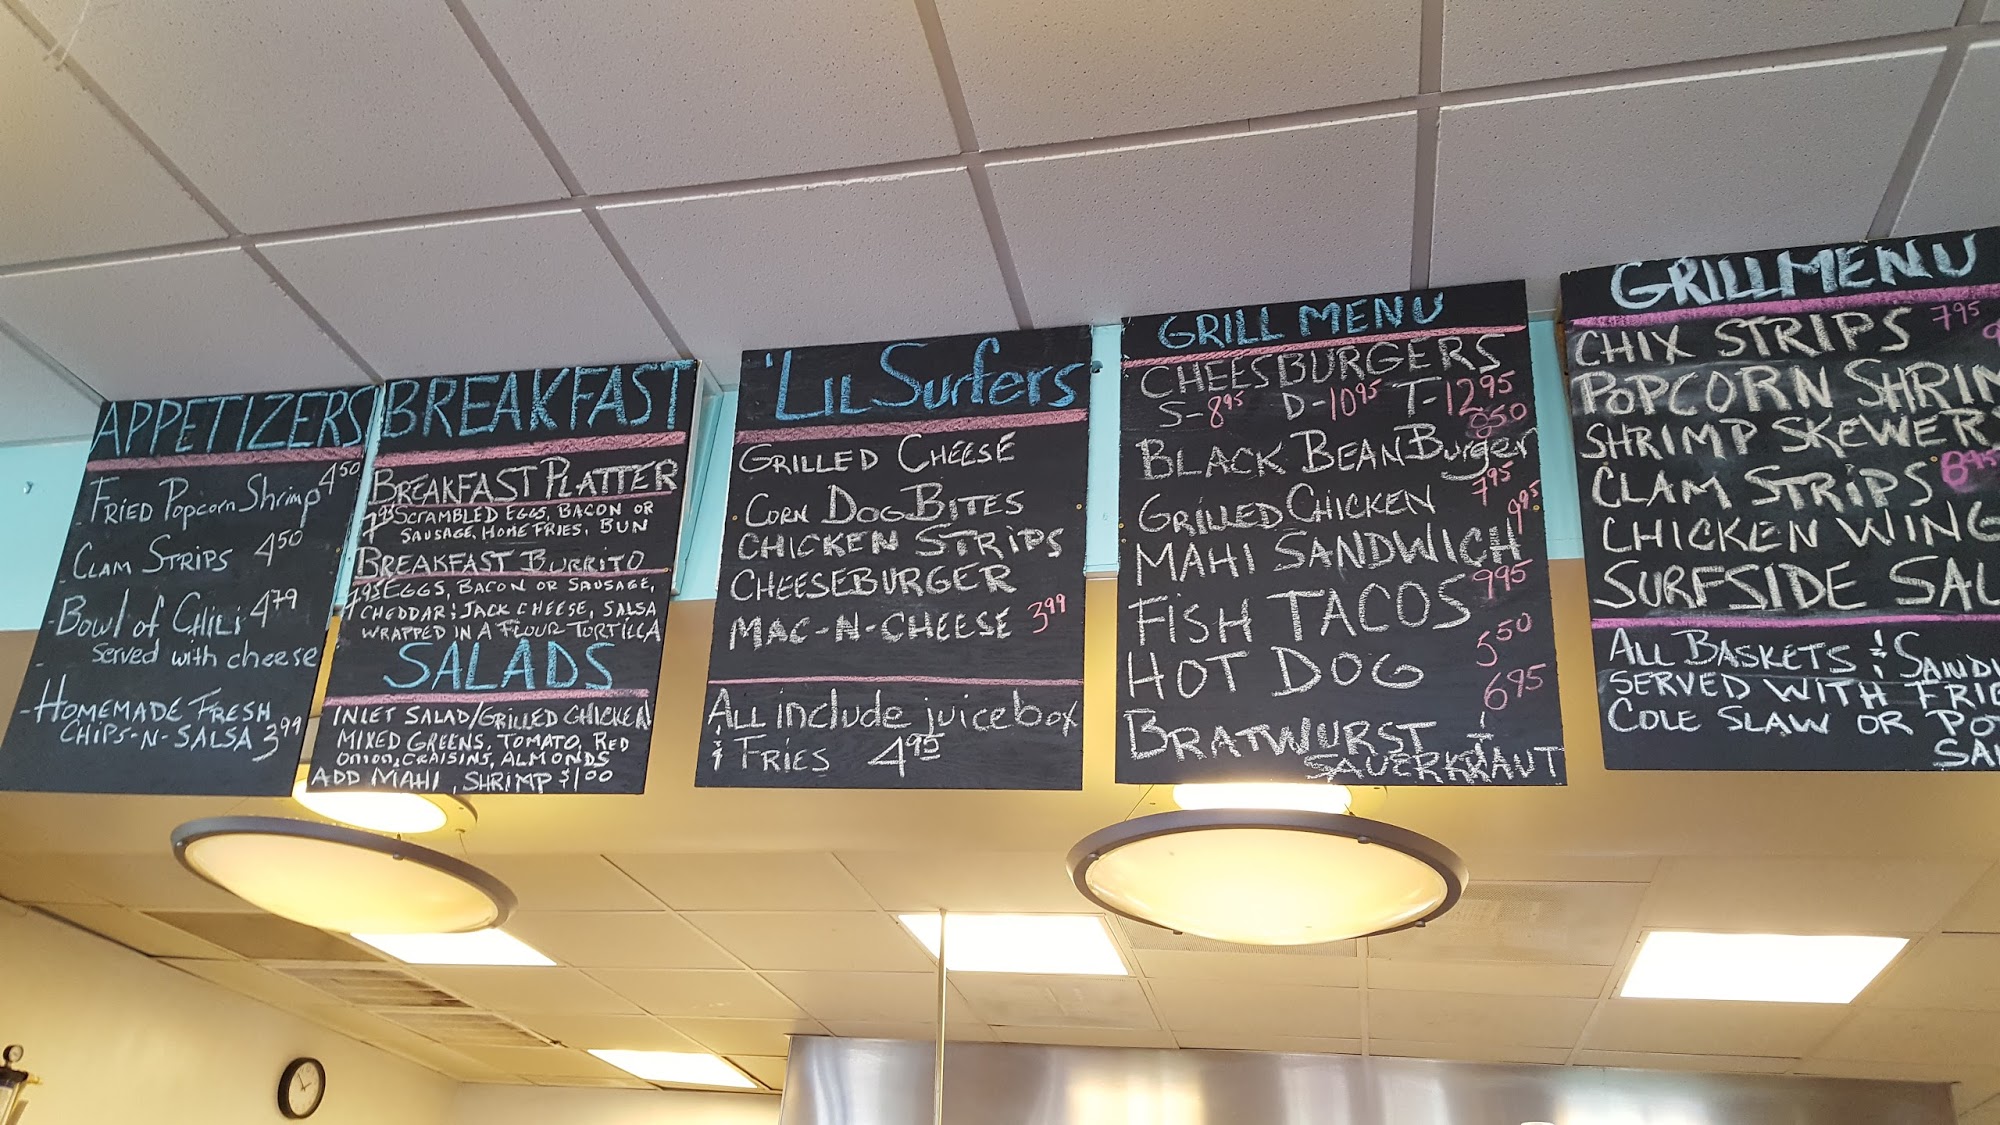 APPETIZERS
FRIED Popcorn Shrimp 4 50
- CLAM STRIPS 4 50
- Bowl of CHILI 4 79
served with cheese
- HOMEMADE FRESH
CHIPS-N-SALSA 3 99
BREAKFAST
BREAKFAST PLATTER
7 95 SCRAMBLED EGGS, BACON OR
SAUSAGE, HOME FRIES, BUN
BREAKFAST BURRITO
7 95 EGGS, BACON OR SAUSAGE,
CHEDDAR & JACK CHEESE, SALSA
WRAPPED IN A FLOUR TORTILLA
SALADS
INLET SALAD/GRILLED CHICKEN
MIXED GREENS, TOMATO, RED
ONION, CRAISINS, ALMONDS
ADD MAHI, SHRIMP $1 00
'LIL Surfers
GRILLED CHEESE
CORN DOG BITES
CHICKEN STRIPS
CHEESEBURGER
MAC-N-CHEESE 3 99
ALL include juicebox
& FRIES 4 95
GRILL MENU
CHEESBURGERS
S-8 95 D-10 95 T-12 95
8 50
BLACK BEAN Burger
7 95
GRILLED CHICKEN
9 95
MAHI SANDWICH
9 95
FISH TACOS
5 50
HOT DOG
6 95
BRATWURST &
SAUERKRAUT
GRILL MENU
CHIX STRIPS 7 95
POPCORN SHRIM
SHRIMP SKEWER
CLAM STRIPS 8 95
CHICKEN WING
SURFSIDE SAL
ALL BASKETS & SANDW
SERVED WITH FRIE
COLE SLAW OR PO
SA